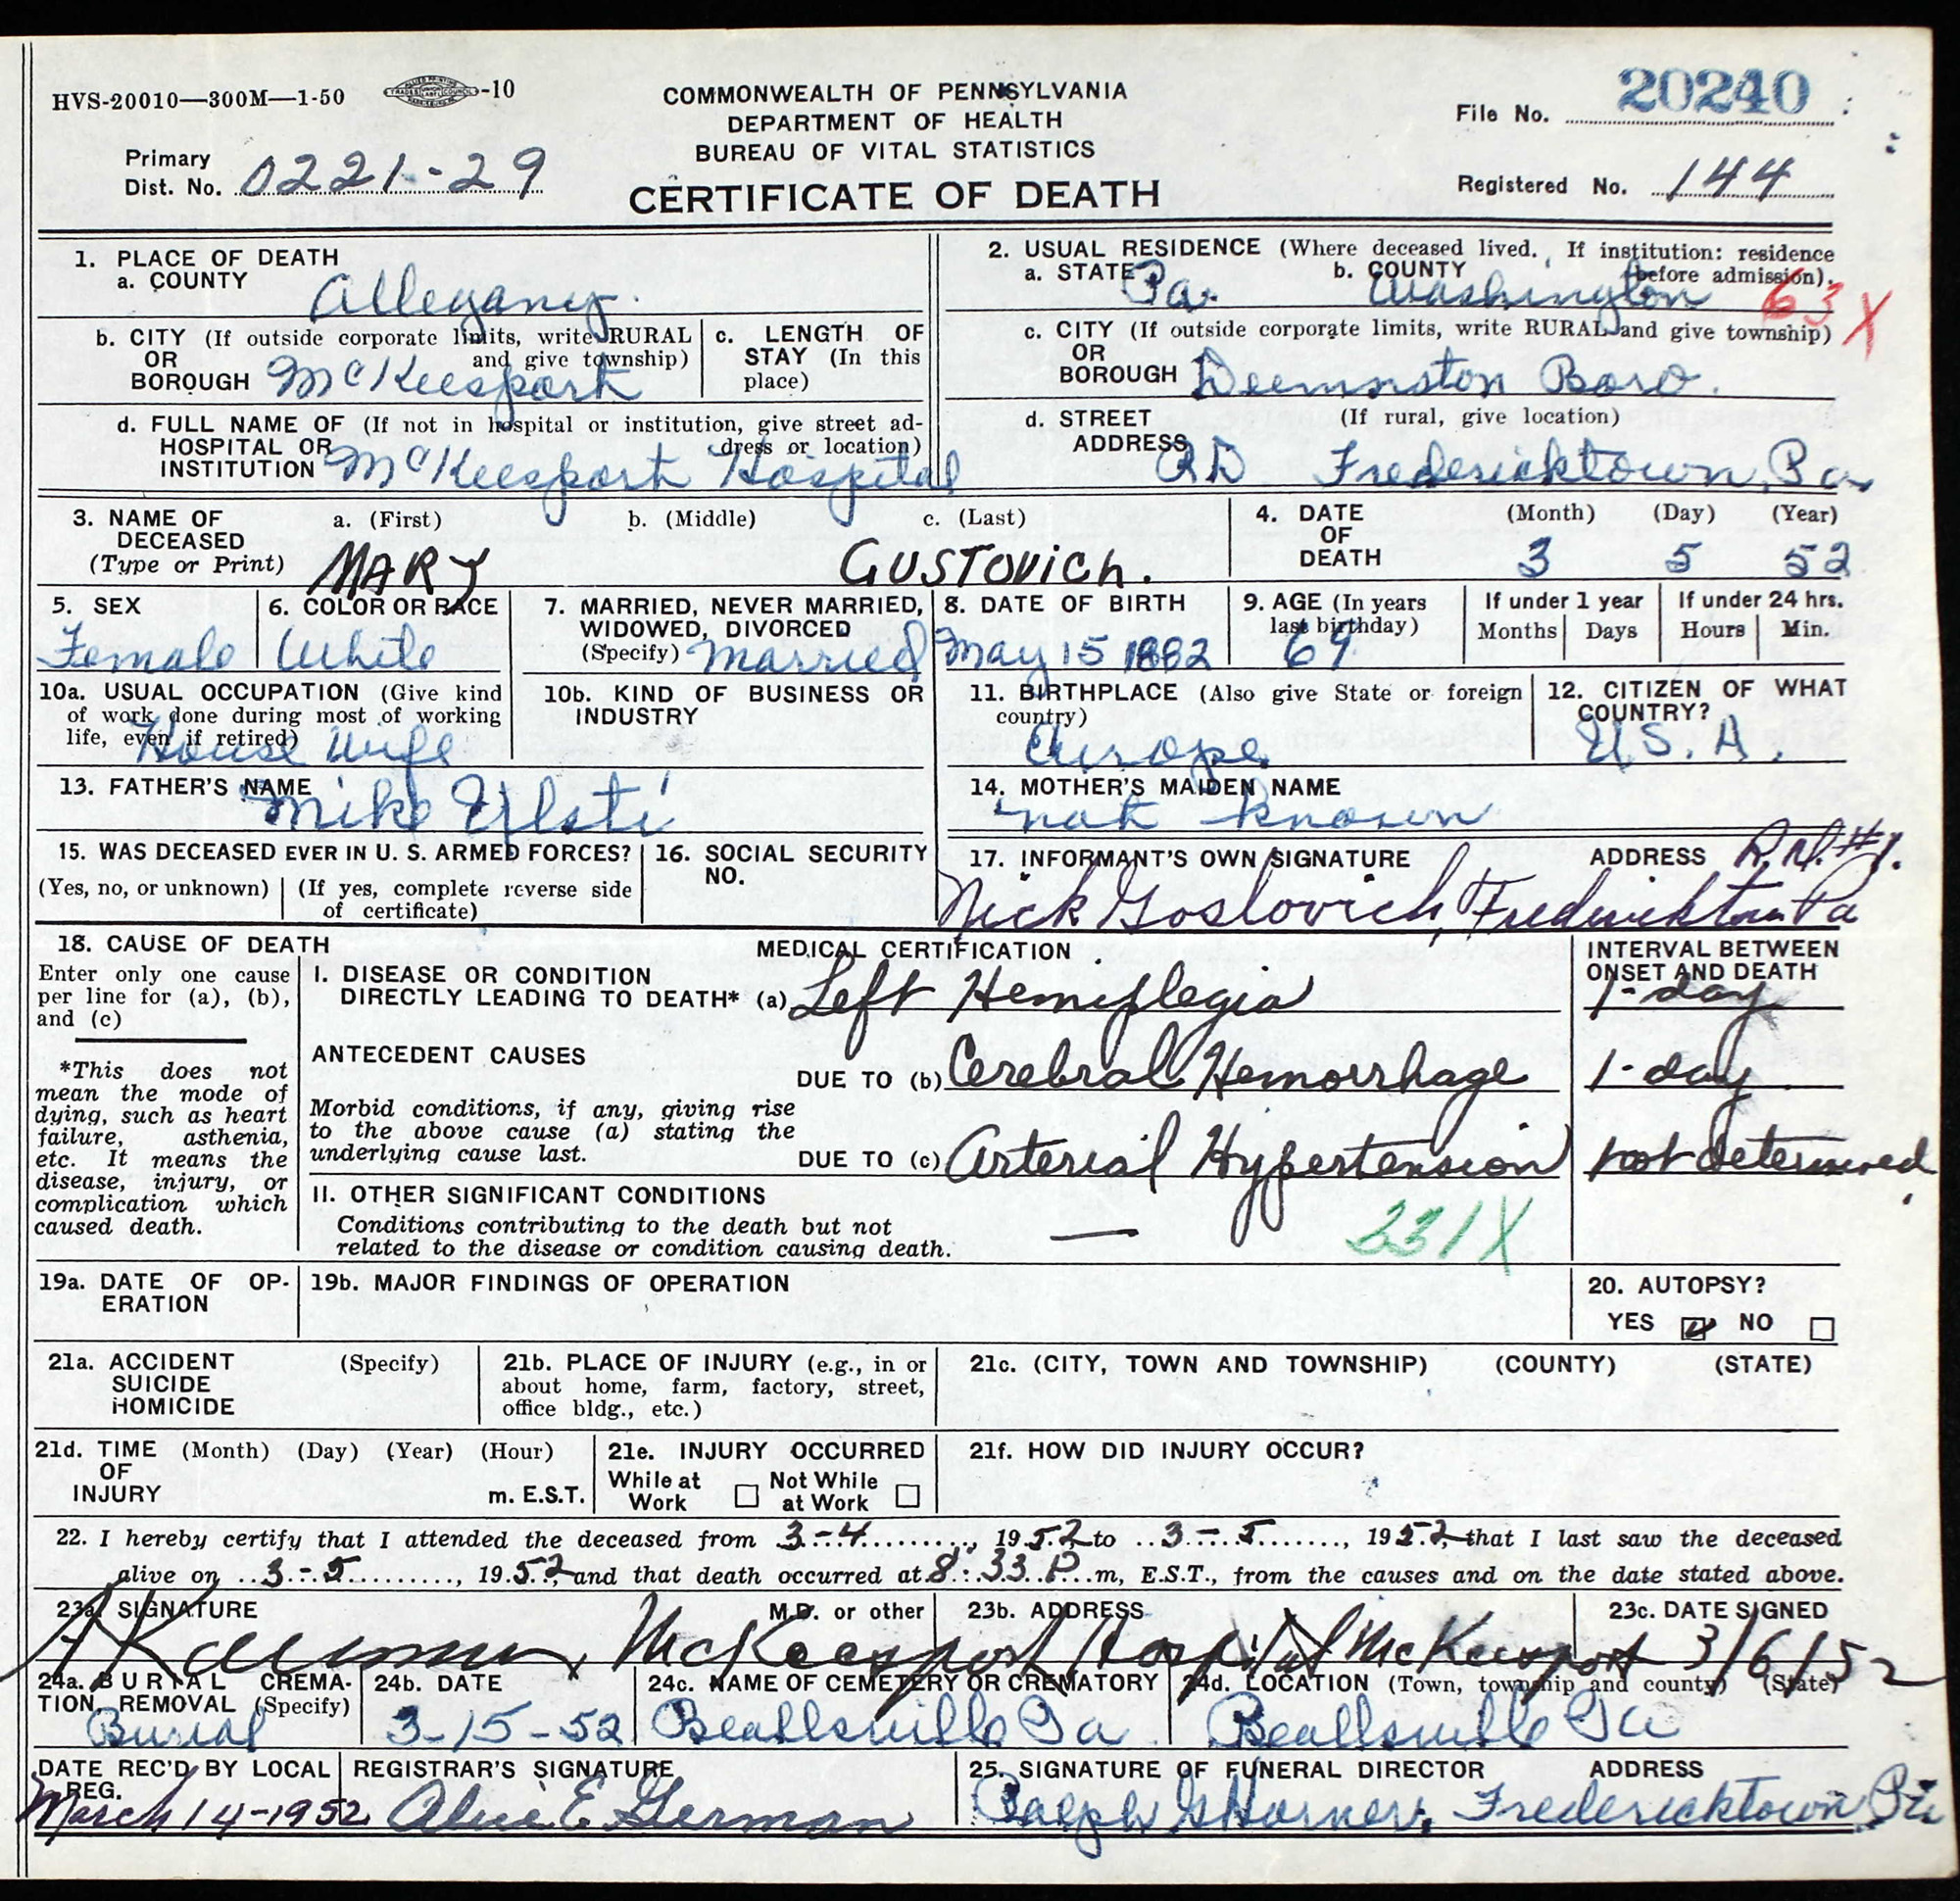 HVS-20010—300M—1-50 -10
COMMONWEALTH OF PENNSYLVANIA
DEPARTMENT OF HEALTH
BUREAU OF VITAL STATISTICS
CERTIFICATE OF DEATH
File No. 20240
Primary Dist. No. 0221-29
Registered No. 144
1. PLACE OF DEATH
a. COUNTY Allegany
b. CITY (If outside corporate limits, write RURAL and give township)
OR
BOROUGH McKeesport
c. LENGTH OF STAY (In this place)
d. FULL NAME OF (If not in hospital or institution, give street address or location)
HOSPITAL OR
INSTITUTION McKeesport Hospital
2. USUAL RESIDENCE (Where deceased lived. If institution: residence before admission).
a. STATE Pa. b. COUNTY Washington 63X
c. CITY (If outside corporate limits, write RURAL and give township)
OR
BOROUGH Deemnston Boro.
d. STREET (If rural, give location)
ADDRESS RD Fredericktown, Pa
3. NAME OF DECEASED (Type or Print)
a. (First) b. (Middle) c. (Last)
MARY GUSTOVICH.
4. DATE OF DEATH (Month) (Day) (Year)
3 5 52
5. SEX
Female
6. COLOR OR RACE
White
7. MARRIED, NEVER MARRIED, WIDOWED, DIVORCED (Specify) Married
8. DATE OF BIRTH
May 15 1882
9. AGE (In years last birthday)
69
If under 1 year
Months Days
If under 24 hrs.
Hours Min.
10a. USUAL OCCUPATION (Give kind of work done during most of working life, even if retired)
House Wife
10b. KIND OF BUSINESS OR INDUSTRY
11. BIRTHPLACE (Also give State or foreign country)
12. CITIZEN OF WHAT COUNTRY?
U.S.A.
13. FATHER'S NAME
Mike
14. MOTHER'S MAIDEN NAME
not known
15. WAS DECEASED EVER IN U. S. ARMED FORCES?
(Yes, no, or unknown) (If yes, complete reverse side of certificate)
16. SOCIAL SECURITY NO.
17. INFORMANT'S OWN SIGNATURE ADDRESS R.D.#1.
Nick Goslovich, Fredericktown Pa
18. CAUSE OF DEATH
Enter only one cause per line for (a), (b), and (c)
*This does not mean the mode of dying, such as heart failure, asthenia, etc. It means the disease, injury, or complication which caused death.
MEDICAL CERTIFICATION
I. DISEASE OR CONDITION
DIRECTLY LEADING TO DEATH* (a) Left Hemiplegia
ANTECEDENT CAUSES
DUE TO (b) Cerebral Hemorrhage
Morbid conditions, if any, giving rise to the above cause (a) stating the underlying cause last.
DUE TO (c) Arterial Hypertension
II. OTHER SIGNIFICANT CONDITIONS
Conditions contributing to the death but not related to the disease or condition causing death. —
331X
INTERVAL BETWEEN ONSET AND DEATH
1-day
1-day
not determined
19a. DATE OF OPERATION
19b. MAJOR FINDINGS OF OPERATION
20. AUTOPSY?
YES NO
21a. ACCIDENT (Specify)
SUICIDE
HOMICIDE
21b. PLACE OF INJURY (e.g., in or about home, farm, factory, street, office bldg., etc.)
21c. (CITY, TOWN AND TOWNSHIP) (COUNTY) (STATE)
21d. TIME (Month) (Day) (Year) (Hour)
OF
INJURY m. E.S.T.
21e. INJURY OCCURRED
While at Work Not While at Work
21f. HOW DID INJURY OCCUR?
22. I hereby certify that I attended the deceased from 3-4, 1952, to 3-5, 1952, that I last saw the deceased
alive on 3-5, 1952, and that death occurred at 8:33 P.m, E.S.T., from the causes and on the date stated above.
23a. SIGNATURE M.D. or other
McKeesport Hospital
23b. ADDRESS
McKeesport
23c. DATE SIGNED
3/6/52
24a. BURIAL CREMATION, REMOVAL (Specify)
Burial
24b. DATE
3-15-52
24c. NAME OF CEMETERY OR CREMATORY
Beallsville Pa
24d. LOCATION (Town, township and county) (State)
Beallsville Pa
DATE REC'D BY LOCAL REG.
March 14-1952
REGISTRAR'S SIGNATURE
Alice E. German
25. SIGNATURE OF FUNERAL DIRECTOR ADDRESS
Ralph G Horner, Fredericktown, Pa